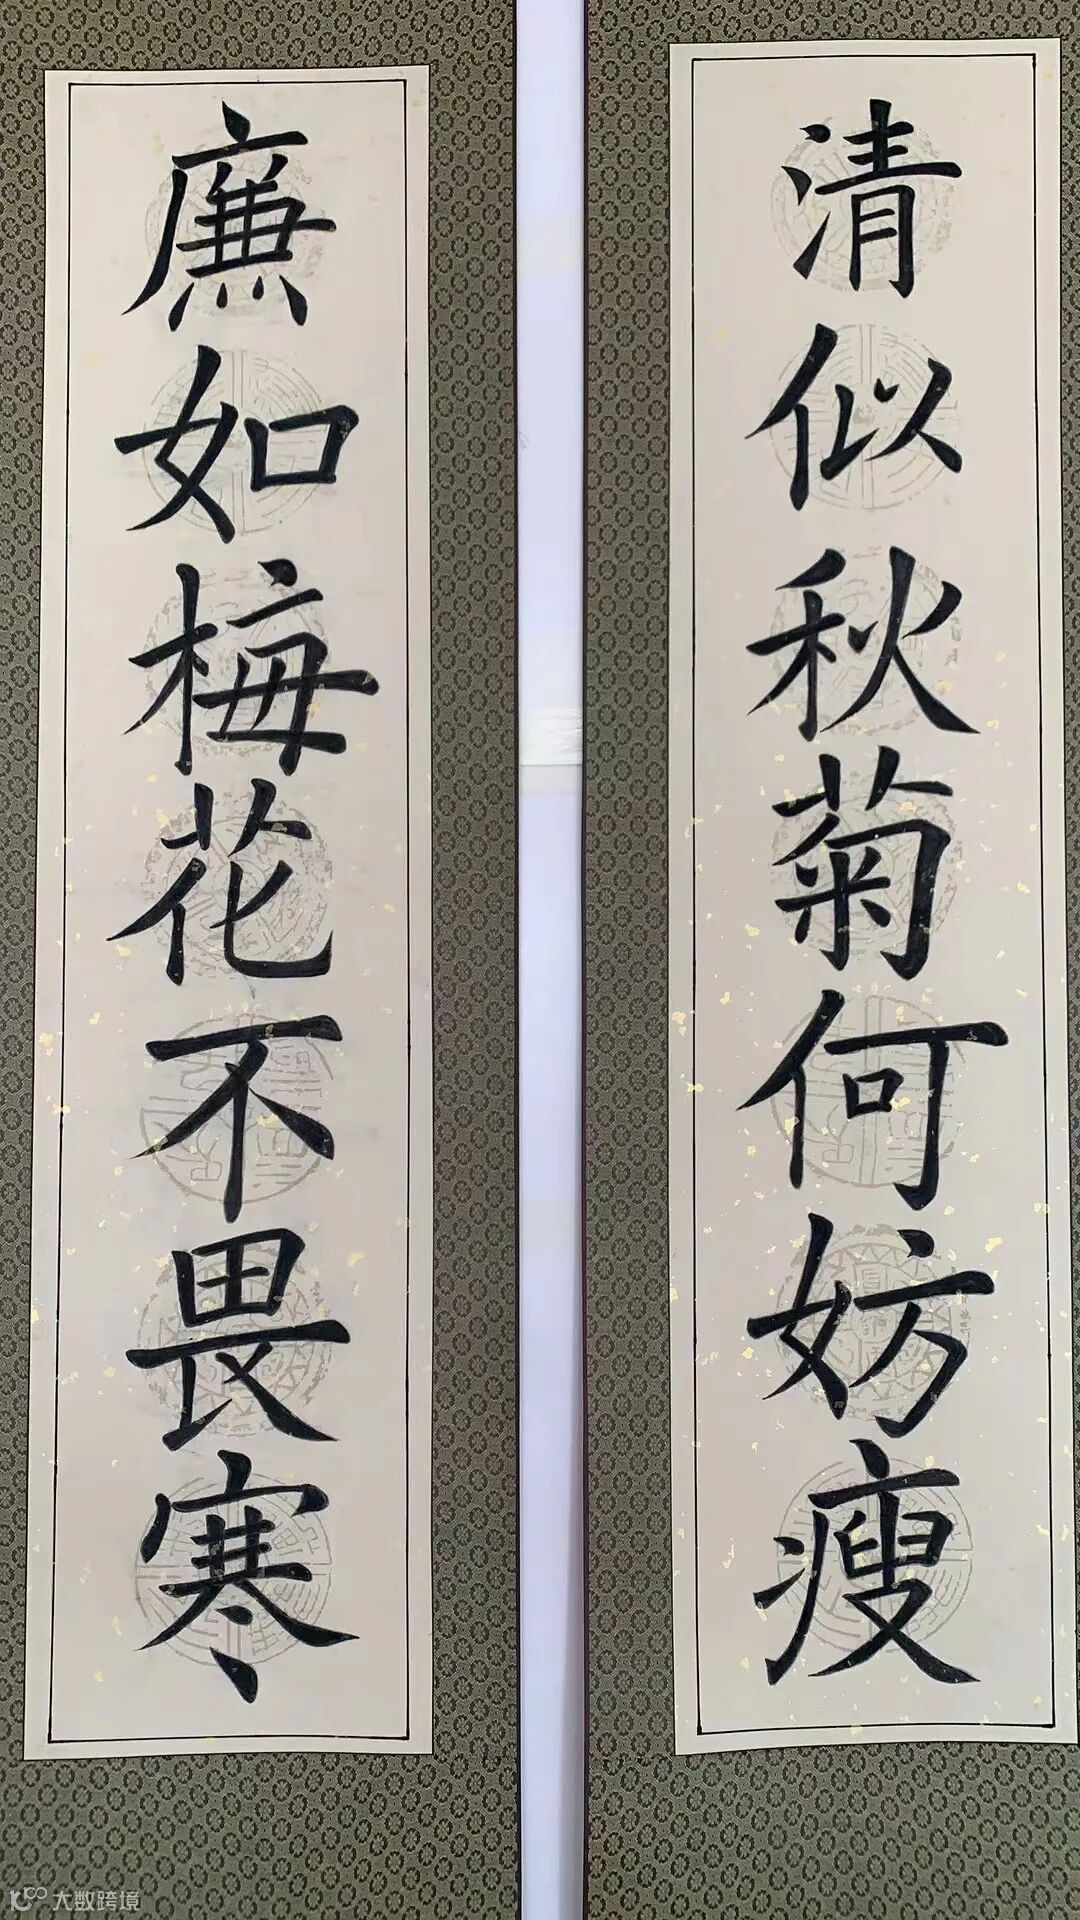 清似秋菊何妨瘦
廉如梅花不畏寒
大数跨境